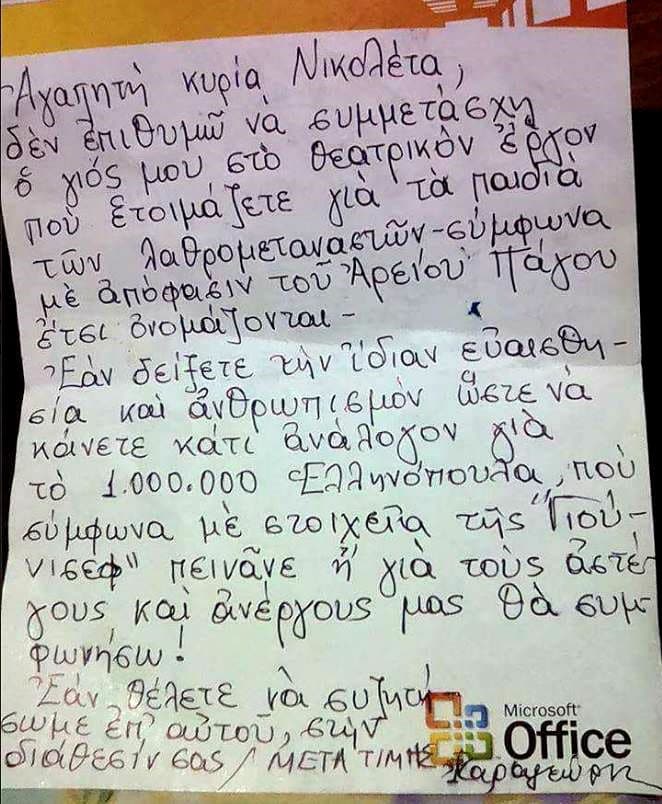 Ἀγαπητή κυρία Νικολέτα,
δὲν ἐπιθυμῶ νὰ συμμετάσχῃ
ὁ γιός μου στὸ θεατρικὸν ἔργον
ποὺ ἑτοιμάζετε γιὰ τὰ παιδιὰ
τῶν λαθρομεταναστῶν-σύμφωνα
μὲ ἀπόφασιν τοῦ Ἀρείου Πάγου
ἔτσι ὀνομάζονται-
Ἐὰν δείξετε τὴν ἴδιαν εὐαισθη-
σία καὶ ἀνθρωπισμὸν ὥστε νὰ
κάνετε κάτι ἀνάλογον γιὰ
τὸ 1.000.000 Ἑλληνόπουλα, ποὺ
σύμφωνα μὲ στοιχεῖα τῆς "Γιού-
νισεφ" πεινᾶνε ἢ γιὰ τοὺς ἀστέ-
γους καὶ ἀνέργους μας θὰ συμ-
φωνήσω!
Ἐὰν θέλετε νὰ συζητή
σωμε ἐπ' αὐτοῦ, στὴν
διάθεσίν σας / ΜΕΤΑ ΤΙΜΗΣ
Microsoft
Office